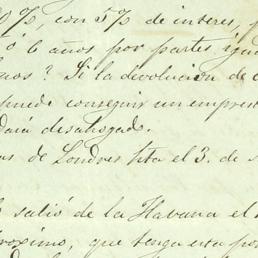 con 5% de interes, p
ó 6 años por partes igua
nos? Si la devolucion de
puede conseguir un empres
dará desahogado.
as de Londres hta el 3. de
salió de la Habana el
róximo, que tenga esta po